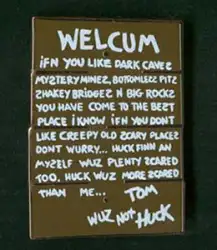 WELCUM
iFN YOU LIKE DARK CAVES
MYSTERY MINEZ, BOTTOMLESS PITZ
SHAKEY BRIDGEZ N BIG ROCKS
YOU HAVE COME TO THE BEST
PLACE I KNOW iFN YOU DONT
LIKE CREEPY OLD SCARY PLACES
DONT WURRY... HUCK FINN AN
MYSELF WUZ PLENTY SCARED
TOO. HUCK WUZ MORE SCARED
THAN ME... TOM
WUZ NOT HUCK